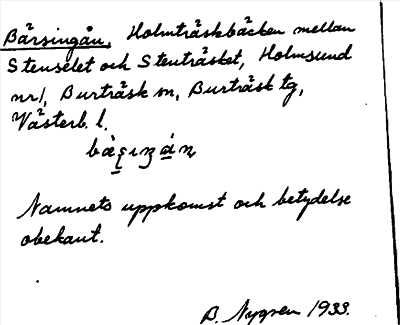 Bärsingån, Holmträskbäcken mellan
Stenselet och Stenträsket, Holmsund
nr 1, Burträsk sn, Burträsk tg,
Västerb. l.
Namnets uppkomst och betydelse
obekant.
B. Nygren 1933.